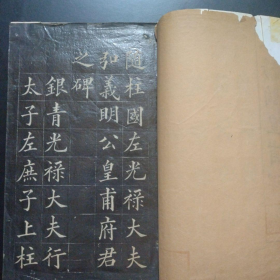 隨柱國左光祿大夫
弘義明公皇甫府君
之碑
銀青光祿大夫行
太子左庶子上柱